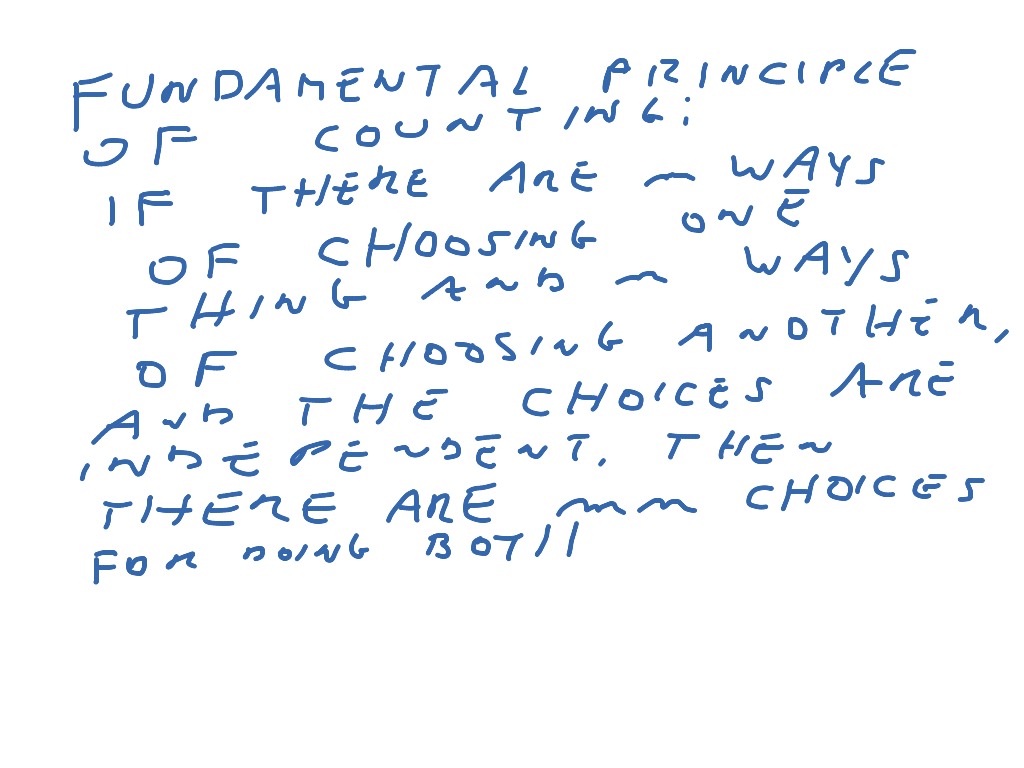 FUNDAMENTAL PRINCIPLE
OF COUNTING:
IF THERE ARE n WAYS
OF CHOOSING ONE
THING AND m WAYS
OF CHOOSING ANOTHER,
AND THE CHOICES ARE
INDEPENDENT, THEN
THERE ARE mn CHOICES
FOR DOING BOTH